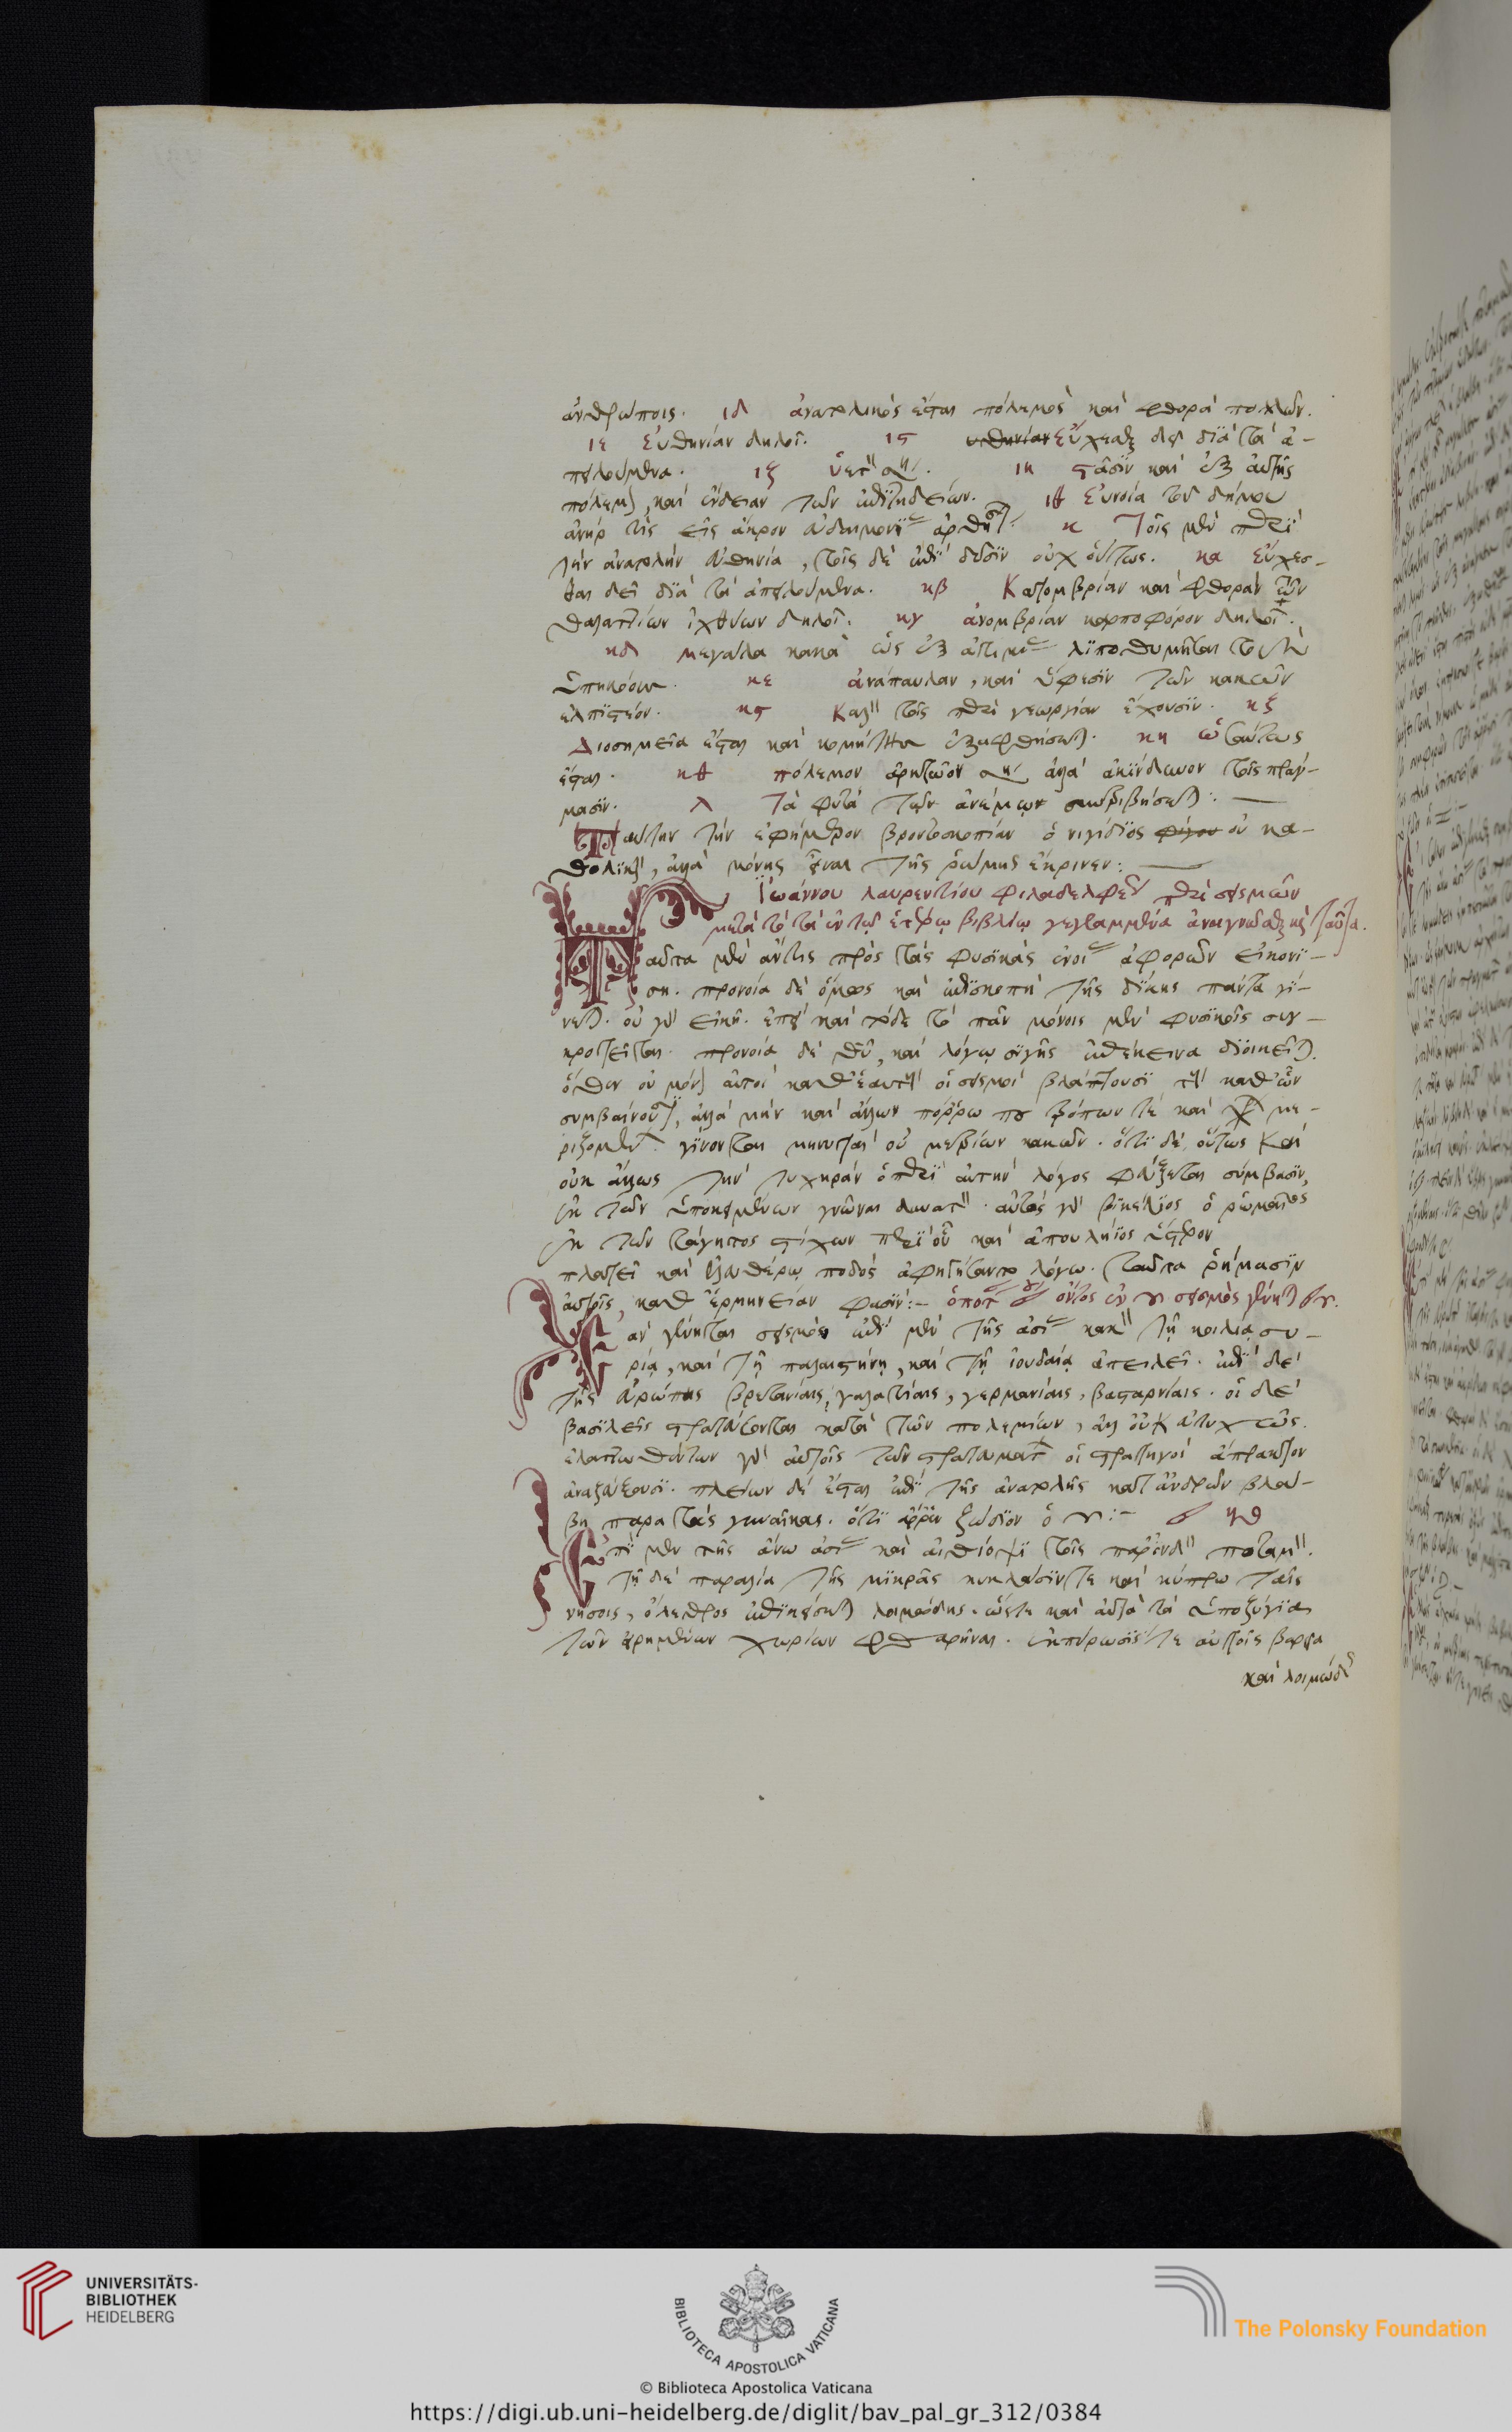 ἀνθρώποις. ιδ ἀνατολικὸς ἔσται πόλεμος καὶ φθορὰ πολλῶν.
ιε εὐθηνίαν δηλοῖ. ις εὐθηνίαν εὔχεσθαι δεῖ διὰ τὰ ἀ-
πειλούμενα. ιζ ιη στάσιν καὶ ἐξ αὐτῆς
πόλεμον, καὶ ἔνδειαν τῶν ἐπιτηδείων. ιθ εὐνοίᾳ τοῦ δήμου
ἀνήρ τις εἰς ἄκρον εὐδαιμονίας ἀρθήσεται. κ τοῖς μὲν περὶ
τὴν ἀνατολὴν εὐθηνία, τοῖς δὲ ἐπὶ δύσιν οὐχ οὕτως. κα εὔχεσ-
θαι δεῖ διὰ τὰ ἀπειλούμενα. κβ κατομβρίαν καὶ φθορὰν τῶν
θαλαττίων ἰχθύων δηλοῖ. κγ ἀνομβρίαν καρποφόρον δηλοῖ.
κδ μεγάλα κακὰ ὡς ἐξ λιποθυμῆσαι τοὺς
ὑπηκόους. κε ἀνάπαυλαν, καὶ ὕφεσιν τῶν κακῶν
ἐλπιστέον. κς καλὸν τοῖς περὶ γεωργίαν ἔχουσιν. κζ
διοσημεῖα ἔσται καὶ κομήτης ἐξαφθήσεται. κη ὡσαύτως
ἔσται. κθ πόλεμον δηλοῖ ἀλλὰ ἀκίνδυνον τοῖς πράγ-
μασιν. λ τὰ φυτὰ τῶν ἀνέμων συντριβήσεται:
ταύτην τὴν ἐφήμερον βροντοσκοπίαν ὁ νιγίδιος οὐ κα-
θολικὴν, ἀλλὰ μόνης εἶναι τῆς ῥώμης ἔκρινεν:
Ἰωάννου λαυρεντίου φιλαδελφέως περὶ σεισμῶν
μετὰ τὸ τὰ ἐν τῷ ἑτέρῳ βιβλίῳ γεγραμμένα ἀναγνῶσθαι καὶ ταῦτα.
Ταῦτα μὲν ἄν τις πρὸς τὰς φυσικὰς ἐννοίας ἀφορῶν εἰκονί-
σῃ. προνοίᾳ δὲ ὅμως καὶ ἐπισκοπῇ τῆς δίκης πάντα γί-
νεται. οὐ γὰρ εἰκῆ. ἐπεὶ καὶ τόδε τὸ πᾶν μόνοις μὲν φυσικοῖς συγ-
κροτεῖται. προνοίᾳ δὲ θεοῦ, καὶ λόγῳ σιγῆς ἐπέκεινα διοικεῖται.
ὅθεν οὐ μόνον αὐτοὶ καθ' ἑαυτοὺς οἱ σεισμοὶ βλάπτουσι τοὺς καθ' ὧν
συμβαίνουσι, ἀλλὰ μὴν καὶ ἄλλων πόρρω που τρόπων τε καὶ με-
ριζομένων γίνονται μηνυταὶ οὐ μετρίων κακῶν. ὅτι δὲ οὕτως καὶ
οὐκ ἄλλως τὴν τυχηρὰν ὁ περὶ αὐτὴν λόγος φυλάξεται σύμβασιν,
ἐκ τῶν ὑποκειμένων γνῶναι δυνατόν. αὐτὸς γὰρ βικέλλιος ὁ ῥωμαῖος
ἐκ τῶν τάγητος στίχων περὶ οὗ καὶ ἀπουλήϊος ὕστερον
πλατεῖ καὶ ἐλευθέρῳ ποδὸς ἀφηγήσαντο λόγῳ. ταῦτα ῥήμασιν
αὐτοῖς, καθ' ἑρμηνείαν φασίν:– ὁπότ ὄντος ἐν ♈ σεισμὸς γένηται
Ἐὰν γένηται σεισμὸς ἐπὶ μὲν τῆς ἀσίας κακὸν τῇ κοιλίᾳ συ-
ρίᾳ, καὶ τῇ παλαιστίνῃ, καὶ τῇ ἰουδαίᾳ ἀπειλεῖ. ἐπὶ δὲ
τῆς εὐρώπης βρετανίαις, γαλατίαις, γερμανίαις, βασταρνίαις. οἱ δὲ
βασιλεῖς στρατεύσονται κατὰ τῶν πολεμίων, ἀλλ' οὐκ εὐτυχῶς.
ἐλαττωθέντων γὰρ αὐτοῖς τῶν στρατευμάτων οἱ στρατηγοὶ ἄπρακτον
ἀναζεύξουσι. πλείων δὲ ἔσται ἐπὶ τῆς ἀνατολῆς κατ' ἀνδρῶν βλά-
βη παρὰ τὰς γυναῖκας. ὅτι ἄρρεν ζώδιον ὁ ♈:–
Ἐπὶ μὲν τῆς ἄνω ἀσίας καὶ αἰθίοψι τοῖς ποταμόν.
τῇ δὲ παραλίᾳ τῆς μικρᾶς κυκλάσιν τε καὶ κύπρῳ ταῖς
νήσοις, ὄλεθρος ἐπικείσεται λοιμώδης. ὥστε καὶ αὐτὰ τὰ ὑποζύγια
τῶν εἰρημένων χωρίων φθαρῆναι. ἐκπύρωσίς τε αὐτοῖς βαρεῖα
καὶ λοιμώδης
UNIVERSITÄTS-
BIBLIOTHEK
HEIDELBERG
BIBLIOTECA APOSTOLICA VATICANA
The Polonsky Foundation
© Biblioteca Apostolica Vaticana
https://digi.ub.uni-heidelberg.de/diglit/bav_pal_gr_312/0384